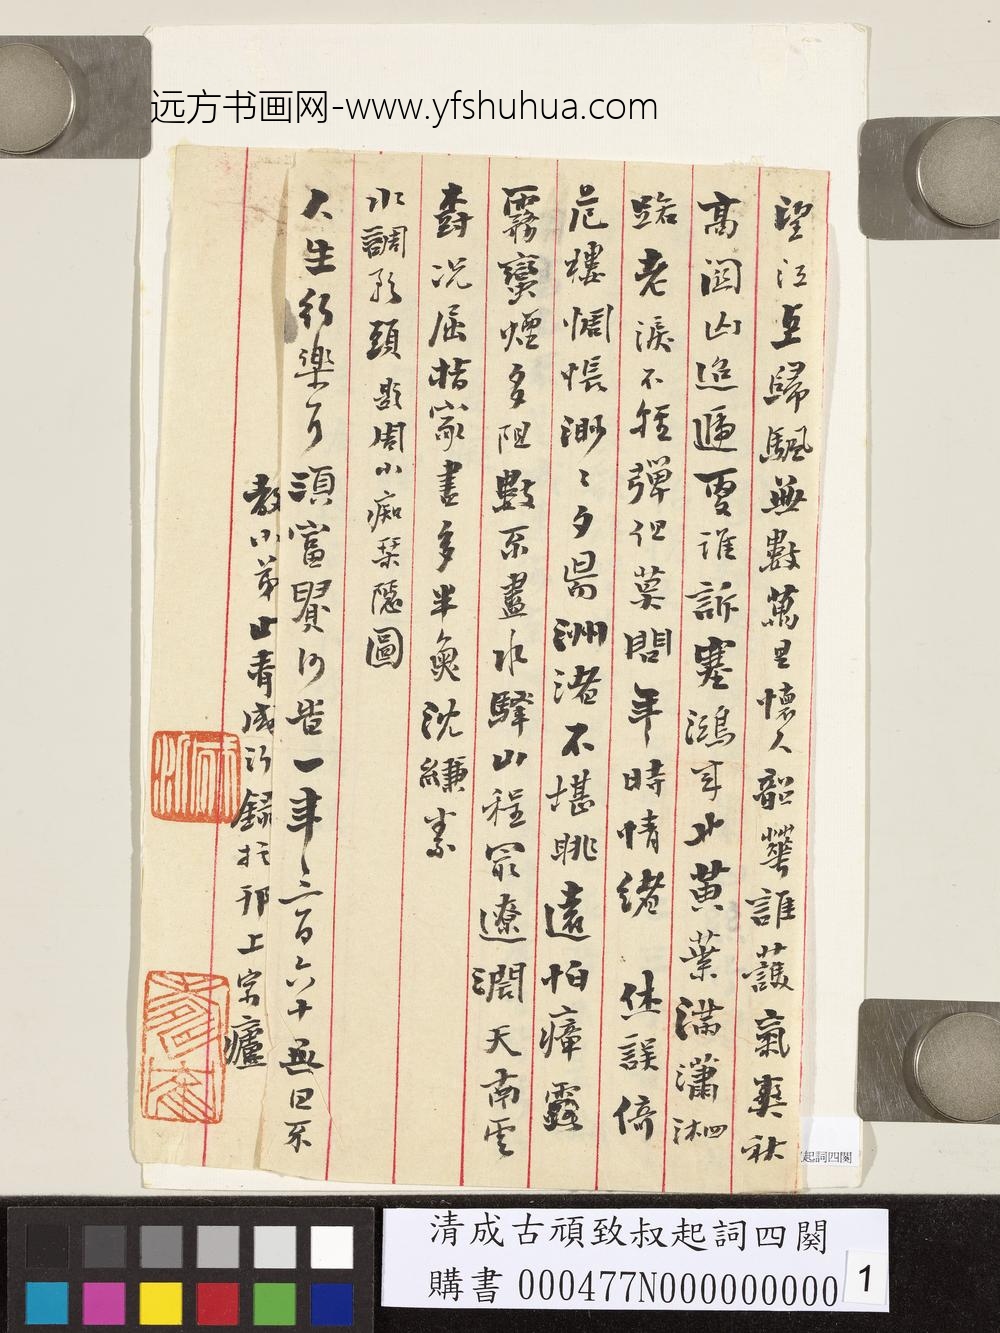 远方书画网-www.yfshuhua.com
望江亙歸颿無數萬里懷人韶華誰護氣爽秋
高關山迢遞更誰訴塞鴻來北黃葉滿瀟湘
路老淚不輕彈但莫問年時情緒 休誤倚
危樓惆悵渺々夕陽洲渚不堪眺遠怕瘴露
霧蠻煙多阻數不盡水驛山程最遼濶天南雲
樹況屈指家書多半魚沈縑素
水調歌頭 題周小痴琹隱圖
人生行樂可須富貴何當一年三百六十無日不
教小弟 青成 錄於邗上客廬
起詞四闋
清成古頑致叔起詞四闋
購書 000477N000000000
1